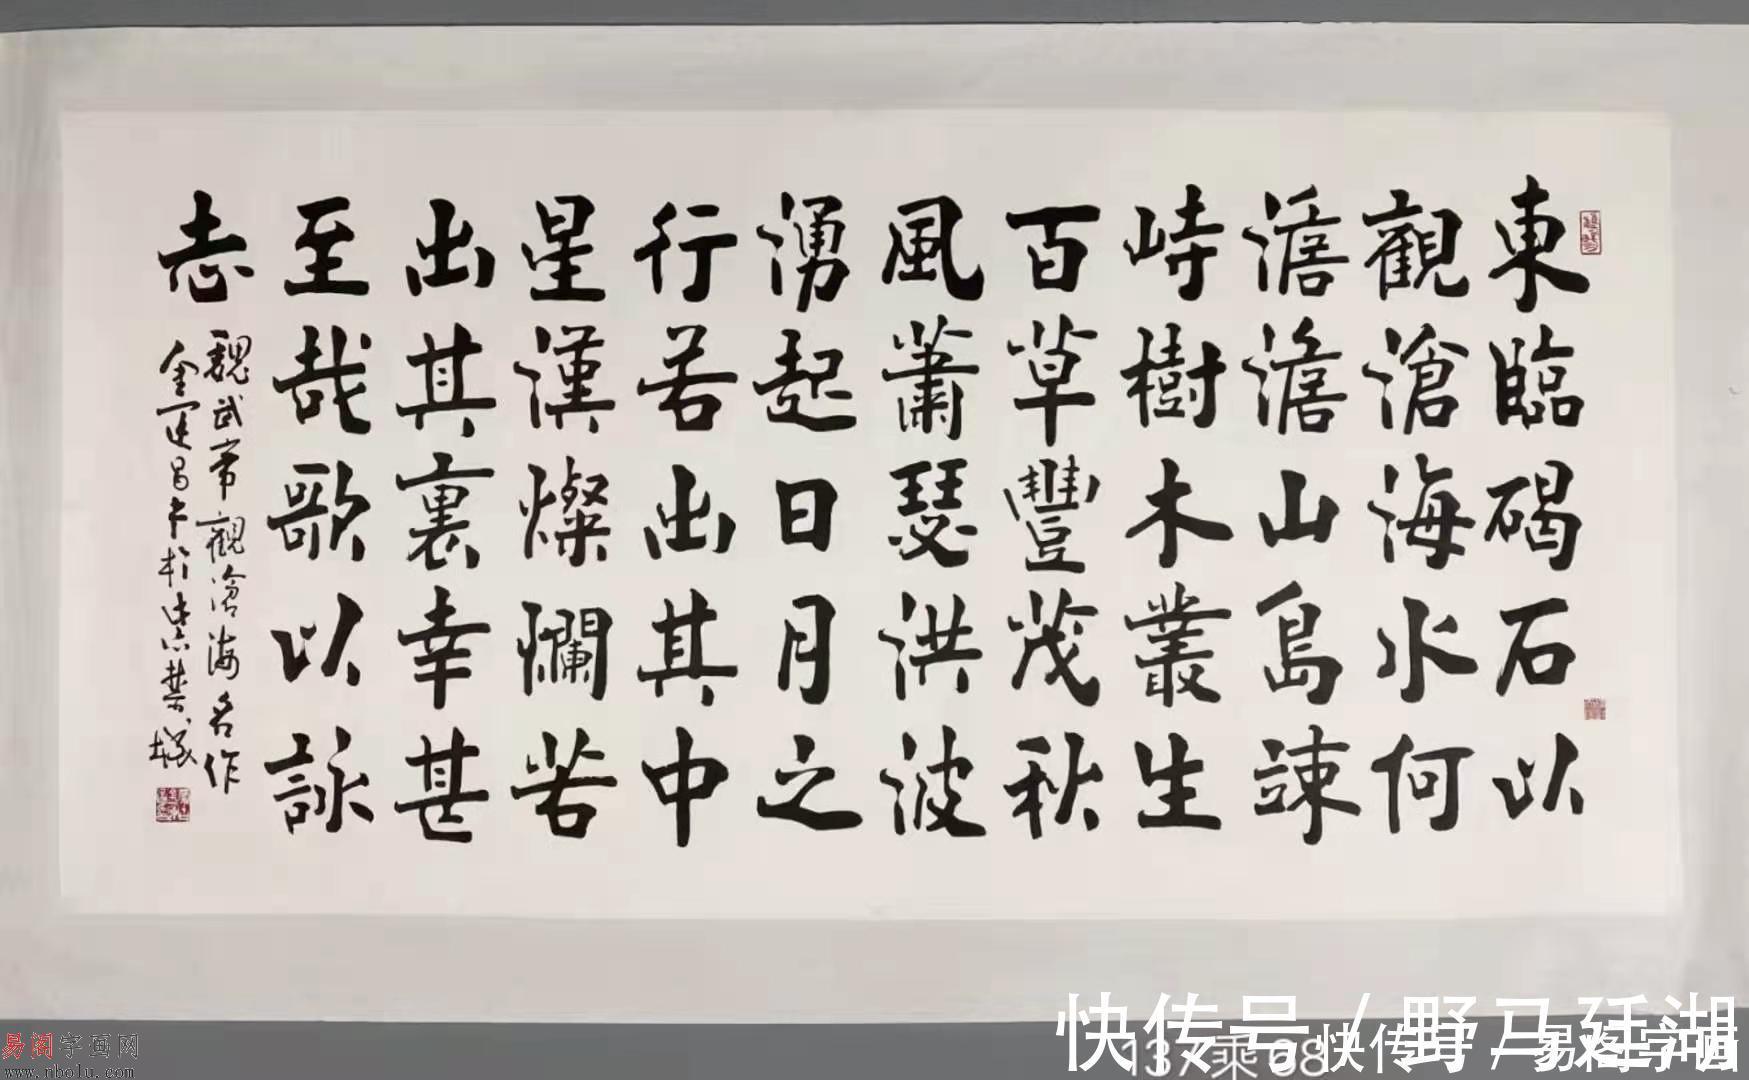 東臨碣石以
觀滄海水何
澹澹山島竦
峙樹木叢生
百草豐茂秋
風蕭瑟洪波
湧起日月之
行若出其中
星漢燦爛若
出其裏幸甚
至哉歌以詠
志
魏武帝觀滄海名作
金運昌
易阁字画网
www.rbolu.com
快传号/野马廷湖
137乘68
快传号/易阁字画